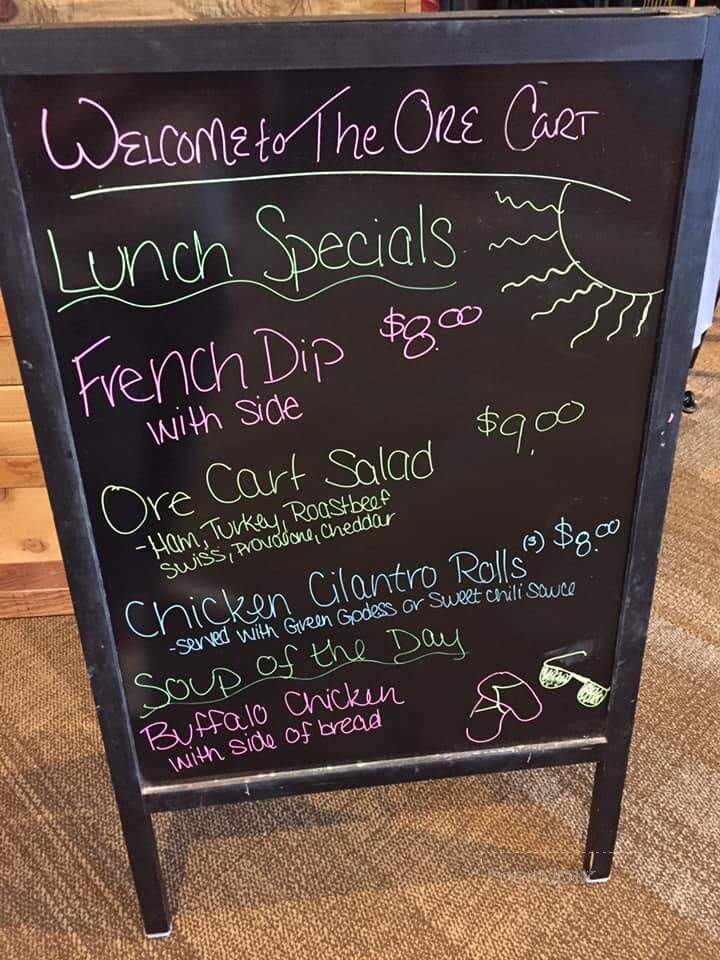 WELCOME to The ORE CART
Lunch Specials
French Dip $8.00
with side
Ore Cart Salad $9.00
-Ham, Turkey, Roastbeef
Swiss, Provolone, Cheddar
Chicken Cilantro Rolls (3) $8.00
-served with Green Godess or Sweet chili Sauce
Soup of the Day
Buffalo Chicken
with side of bread